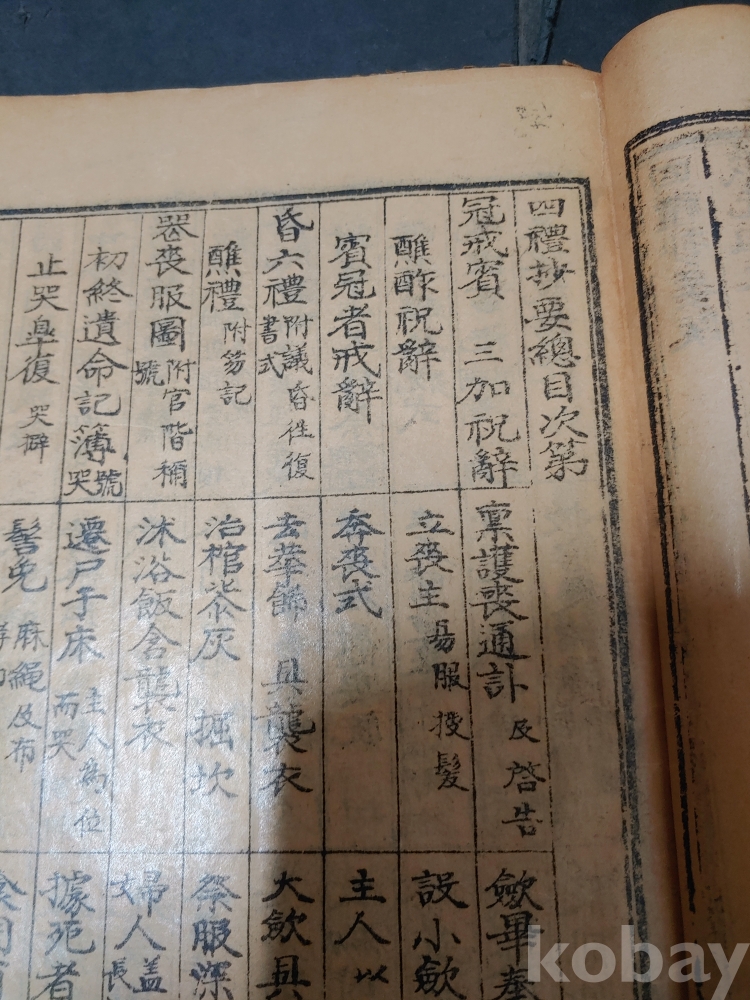 四禮抄要總目次第
冠戒賓 三加祝辭
醮酢祝辭
賓冠者戒辭
昏六禮 附議昏往復書式
醮禮 附笏記
喪服圖 附官階稱號
初終遺命記簿
止哭皐復 哭擗
稟護喪通訃 及啓告
立喪主 易服
奔喪式
去華飾 具襲衣
治棺 灰 掘坎
沐浴飯含襲衣
遷尸于床 主人為位而哭
髻免 麻繩及布
斂畢奉
設小斂
主人以
大斂具
祭服深
婦人盖長
據死者
kobay